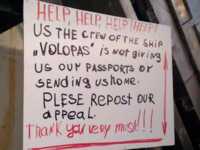 HELP, HELP, HELP !!!!!
US THE CREW OF THE SHIP
„VOLOPAS" is not giving
US OUR PASSPORTS OR
sending us home.
PLESE REPOST OUR
appeal.
Thank you very mush!!!